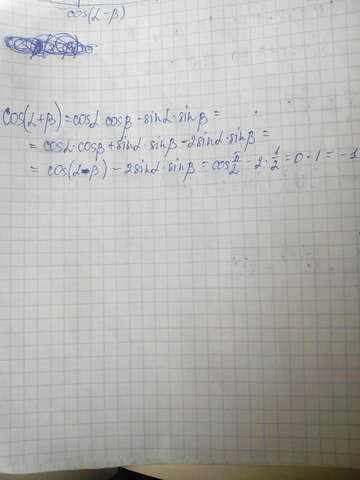 cos(α-β)
cos(α+β) = cosα cosβ - sinα·sinβ =
= cosα·cosβ + sinα·sinβ - 2sinα·sinβ =
= cos(α-β) - 2sinα·sinβ = cos π/2 - 2·1/2 = 0-1 = -1